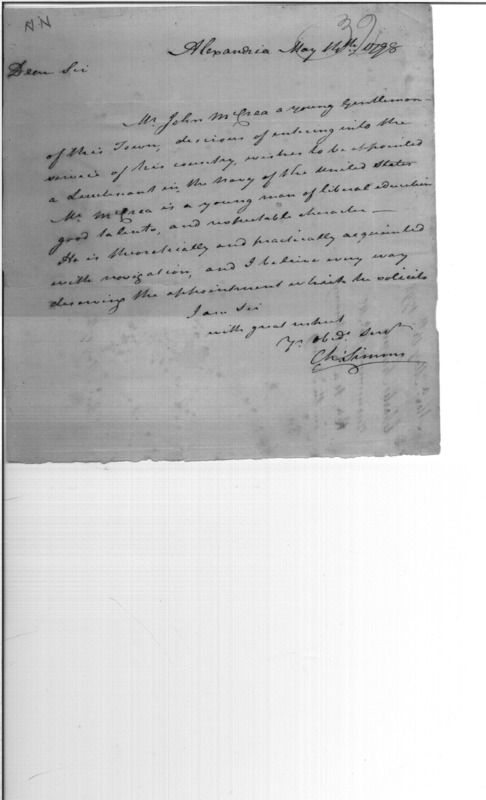 39
Alexandria May 14th. 1798
Dear Sir
Mr. John McCrea a young Gentleman
of this Town, desirous of entering into the
service of his country, wishes to be appointed
a Lieutenant in the Navy of the United States
Mr. McCrea is a young man of liberal education
good talents, and respectable character —
He is theoretically and practically acquainted
with navigation, and I believe every way
deserving the appointment which he solicits
I am Sir
with great respect
Yr. Obdt. Servt.
Ch: Simms